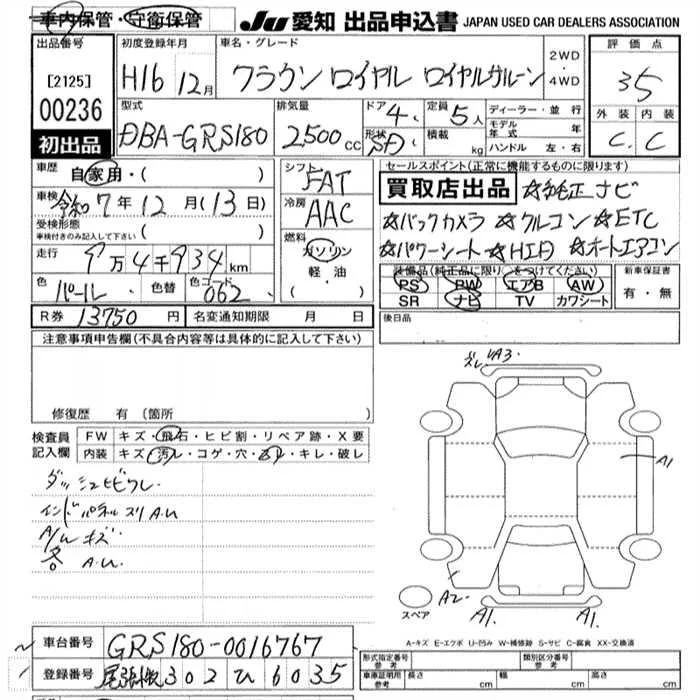 車内保管・守衛保管 JU 愛知 出品申込書 JAPAN USED CAR DEALERS ASSOCIATION
出品番号 初度登録年月 車名・グレード 2WD・4WD 評価点
[2125] H16 12月 クラウン ロイヤル ロイヤルサルーン 3.5
00236 型式 排気量 ドア 定員 ディーラー・並行 外装 内装
初出品 DBA-GRS180 2500cc 4 5人 モデル年式 年 C C
形状 SD 積載 kg ハンドル 左・右
車歴 自家用・( ) シフト FAT セールスポイント(正常に機能するものに限ります)
車検 令和7年12月(13日) 冷房 AAC 買取店出品 ☆純正ナビ
受検形態 車検付きのみ記入して下さい ( ) ☆バックカメラ ☆クルコン ☆ETC
走行 9万4千934km 燃料 ガソリン 軽油 ・( ) ☆パワーシート ☆HID ☆オートエアコン
色 パール 色替 色コード 062 装備品(純正品に限り○をつけてください) 新車保証書
PS PW エアB AW 有・無
SR ナビ TV カワシート
R券 13750円 名変通知期限 月 日 後日品
注意事項申告欄(不具合内容等は具体的に記入して下さい)
修復歴 有 (箇所
ズレ A3
検査員記入欄 FW キズ・飛石・ヒビ割・リペア跡・X要
内装 キズ・汚レ・コゲ・穴・キレ・破レ
A1
ダッシュヒビワレ
インドパネルスリA.U
A/Wキズ
各A.U
スペア A2 A1 A1
A-キズ E-エクボ U-凹み W-補修跡 S-サビ C-腐食 XX-交換済
車台番号 GRS180-0016767
登録番号 尾張小牧302ひ6035
形式指定番号 参考 類別区分番号 参考
車庫証明用 参考 長さ 幅 高さ